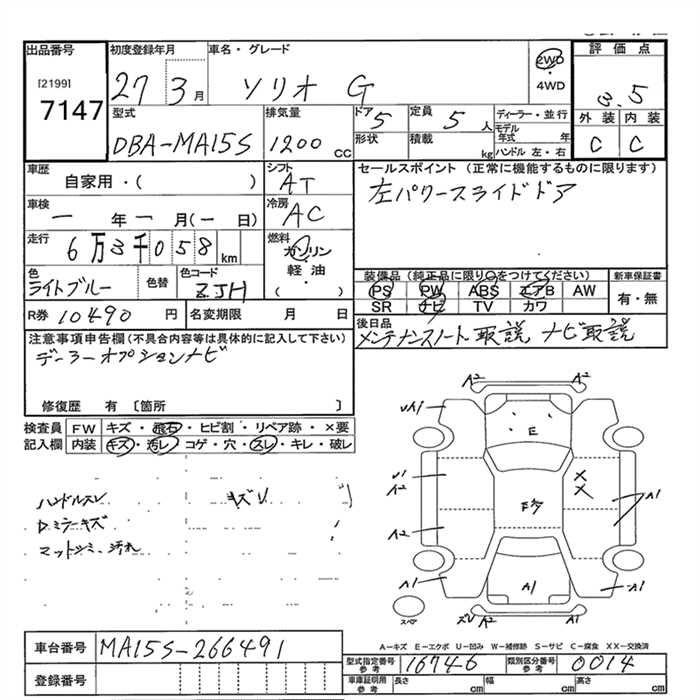 出品番号 初度登録年月 車名・グレード 2WD 評価点
[2199] 27 3月 ソリオ G ・ 3.5
7147 4WD
型式 排気量 ドア 5 定員 5人 ディーラー・並行 外装 内装
DBA-MA15S 1200cc 形状 積載 kg モデル年式 年 C C
ハンドル 左・右
車歴 シフト セールスポイント (正常に機能するものに限ります)
自家用・( ) AT 左パワースライドドア
車検 冷房
一年一月(一日) AC
走行 燃料
6万3千058km ガソリン・
色 色替 色コード 軽油・
ライトブルー ZJH ( )
装備品 (純正品に限り○をつけてください) 新車保証書
PS PW ABS エアB AW 有・無
SR ナビ TV カワ
R券 10490円 名変期限 月 日
後日品
メンテナンスノート、取説、ナビ取説
注意事項申告欄(不具合内容等は具体的に記入して下さい)
デーラーオプションナビ
修復歴 有 〔箇所 〕
検査員 FW キズ・飛石・ヒビ割・リペア跡・×要
記入欄 内装 キズ・汚レ・コゲ・穴・スレ・キレ・破レ
ハンドルスレ キズリ
D.ミラーキズ
マットシミ、汚れ
A2 A2
A1
E
U1
A2 X X
A1
A2
A1 A1 A1
スペア A2
A-キズ E-エクボ U-凹み W-補修跡 S-サビ C-腐食 XX-交換済
車台番号 MA15S-266491
型式指定番号 参考 16746 類別区分番号 参考 0014
登録番号
車庫証明用 参考 長さ cm 幅 cm 高さ cm